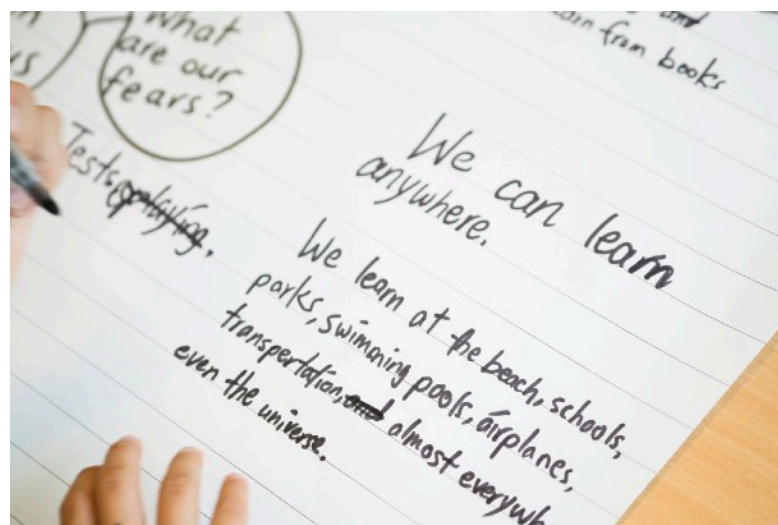 What
are our
fears?
Tests,
and
from books
We can learn
anywhere.
We learn at the beach, schools,
parks, swimming pools, airplanes,
transportation, and almost
even the universe.